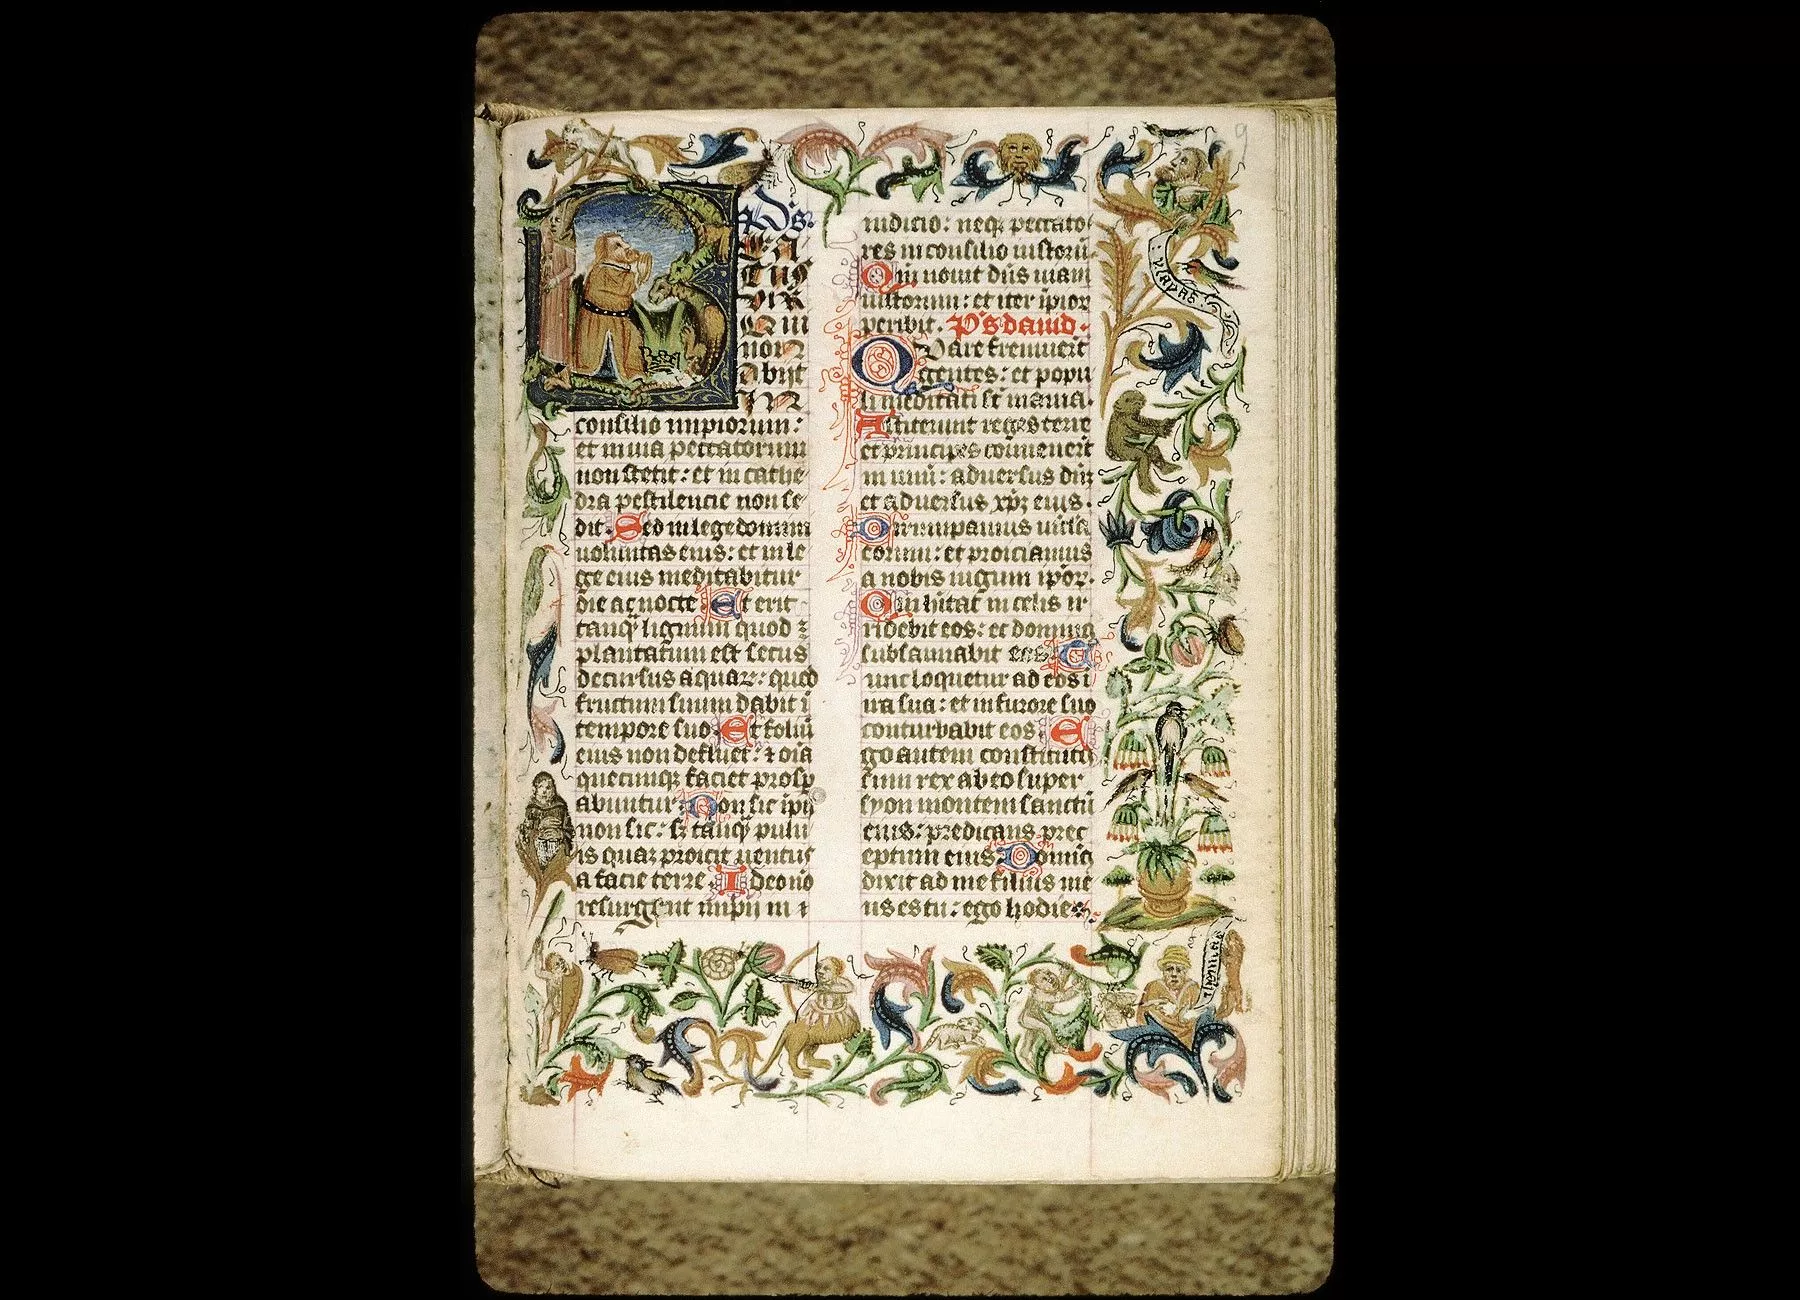 Ps.
Ea
tus
vir
Qui
non
Abijt
in
consilio impiorum:
et in via peccatorum
non stetit: et in cathe
dra pestilencie non se
dit. Sed in lege domini
uoluntas eius: et in le
ge eius meditabitur
die ac nocte Et erit
tanqͣ lignum quod
plantatum est secus
decursus aquaꝝ: quod
fructum suum dabit ī
tempore suo Et foliū
eius non defluet: ⁊ oīa
quecunqꝫ faciet prosp
abuntur Non sic ipij
non sic: sꝫ tanqͣ pulu
is quaꝫ proicit uentus
a facie terre Ideo nō
resurgent impij in
iudicio: neqꝫ peccato
res in consilio iustorū
Qm̄ nouit dn̄s uiam
iustorum: et iter īpioꝝ
peribit. Ps dauid.
Quare fremuerūt
gentes: et popu
li meditati sūt inania.
Astiterunt reges terre
et principes conuenerūt
in unū: aduersus dn̄ꝫ
et aduersus xp̄ꝫ eius.
Dirumpamus uincla
eorum: et proiciamus
a nobis iugum ip̄oꝝ.
Qui hītat in celis ir
ridebit eos: et dominꝰ
subsannabit eos T
unc loquetur ad eos ī
ira sua: et in furore suo
conturbabit eos E
go autem constitutꝰ
sum rex ab eo super
syon montem sanctū
eius: predicans prec
eptum eius Dominꝰ
dixit ad me filius me
us es tu: ego hodie
9